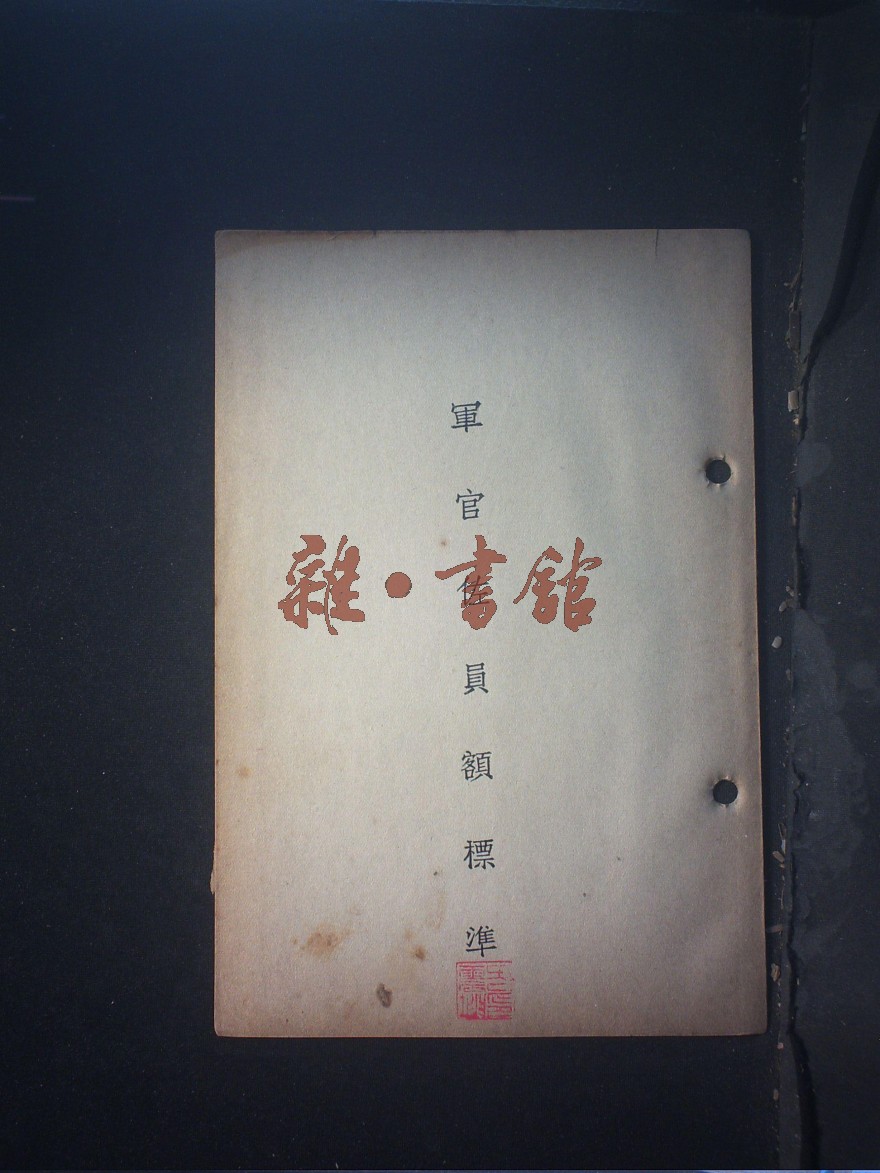 軍官佐員額標準
雜·書館